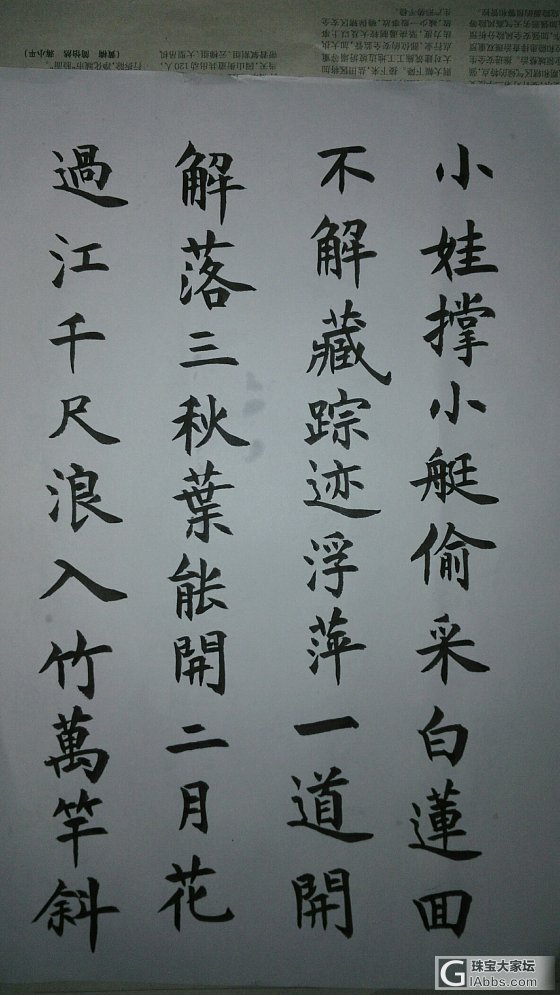 小娃撑小艇偷采白蓮回
不解藏踪迹浮萍一道開
解落三秋葉能開二月花
過江千尺浪入竹萬竿斜
珠宝大家坛
GIAbbs.com